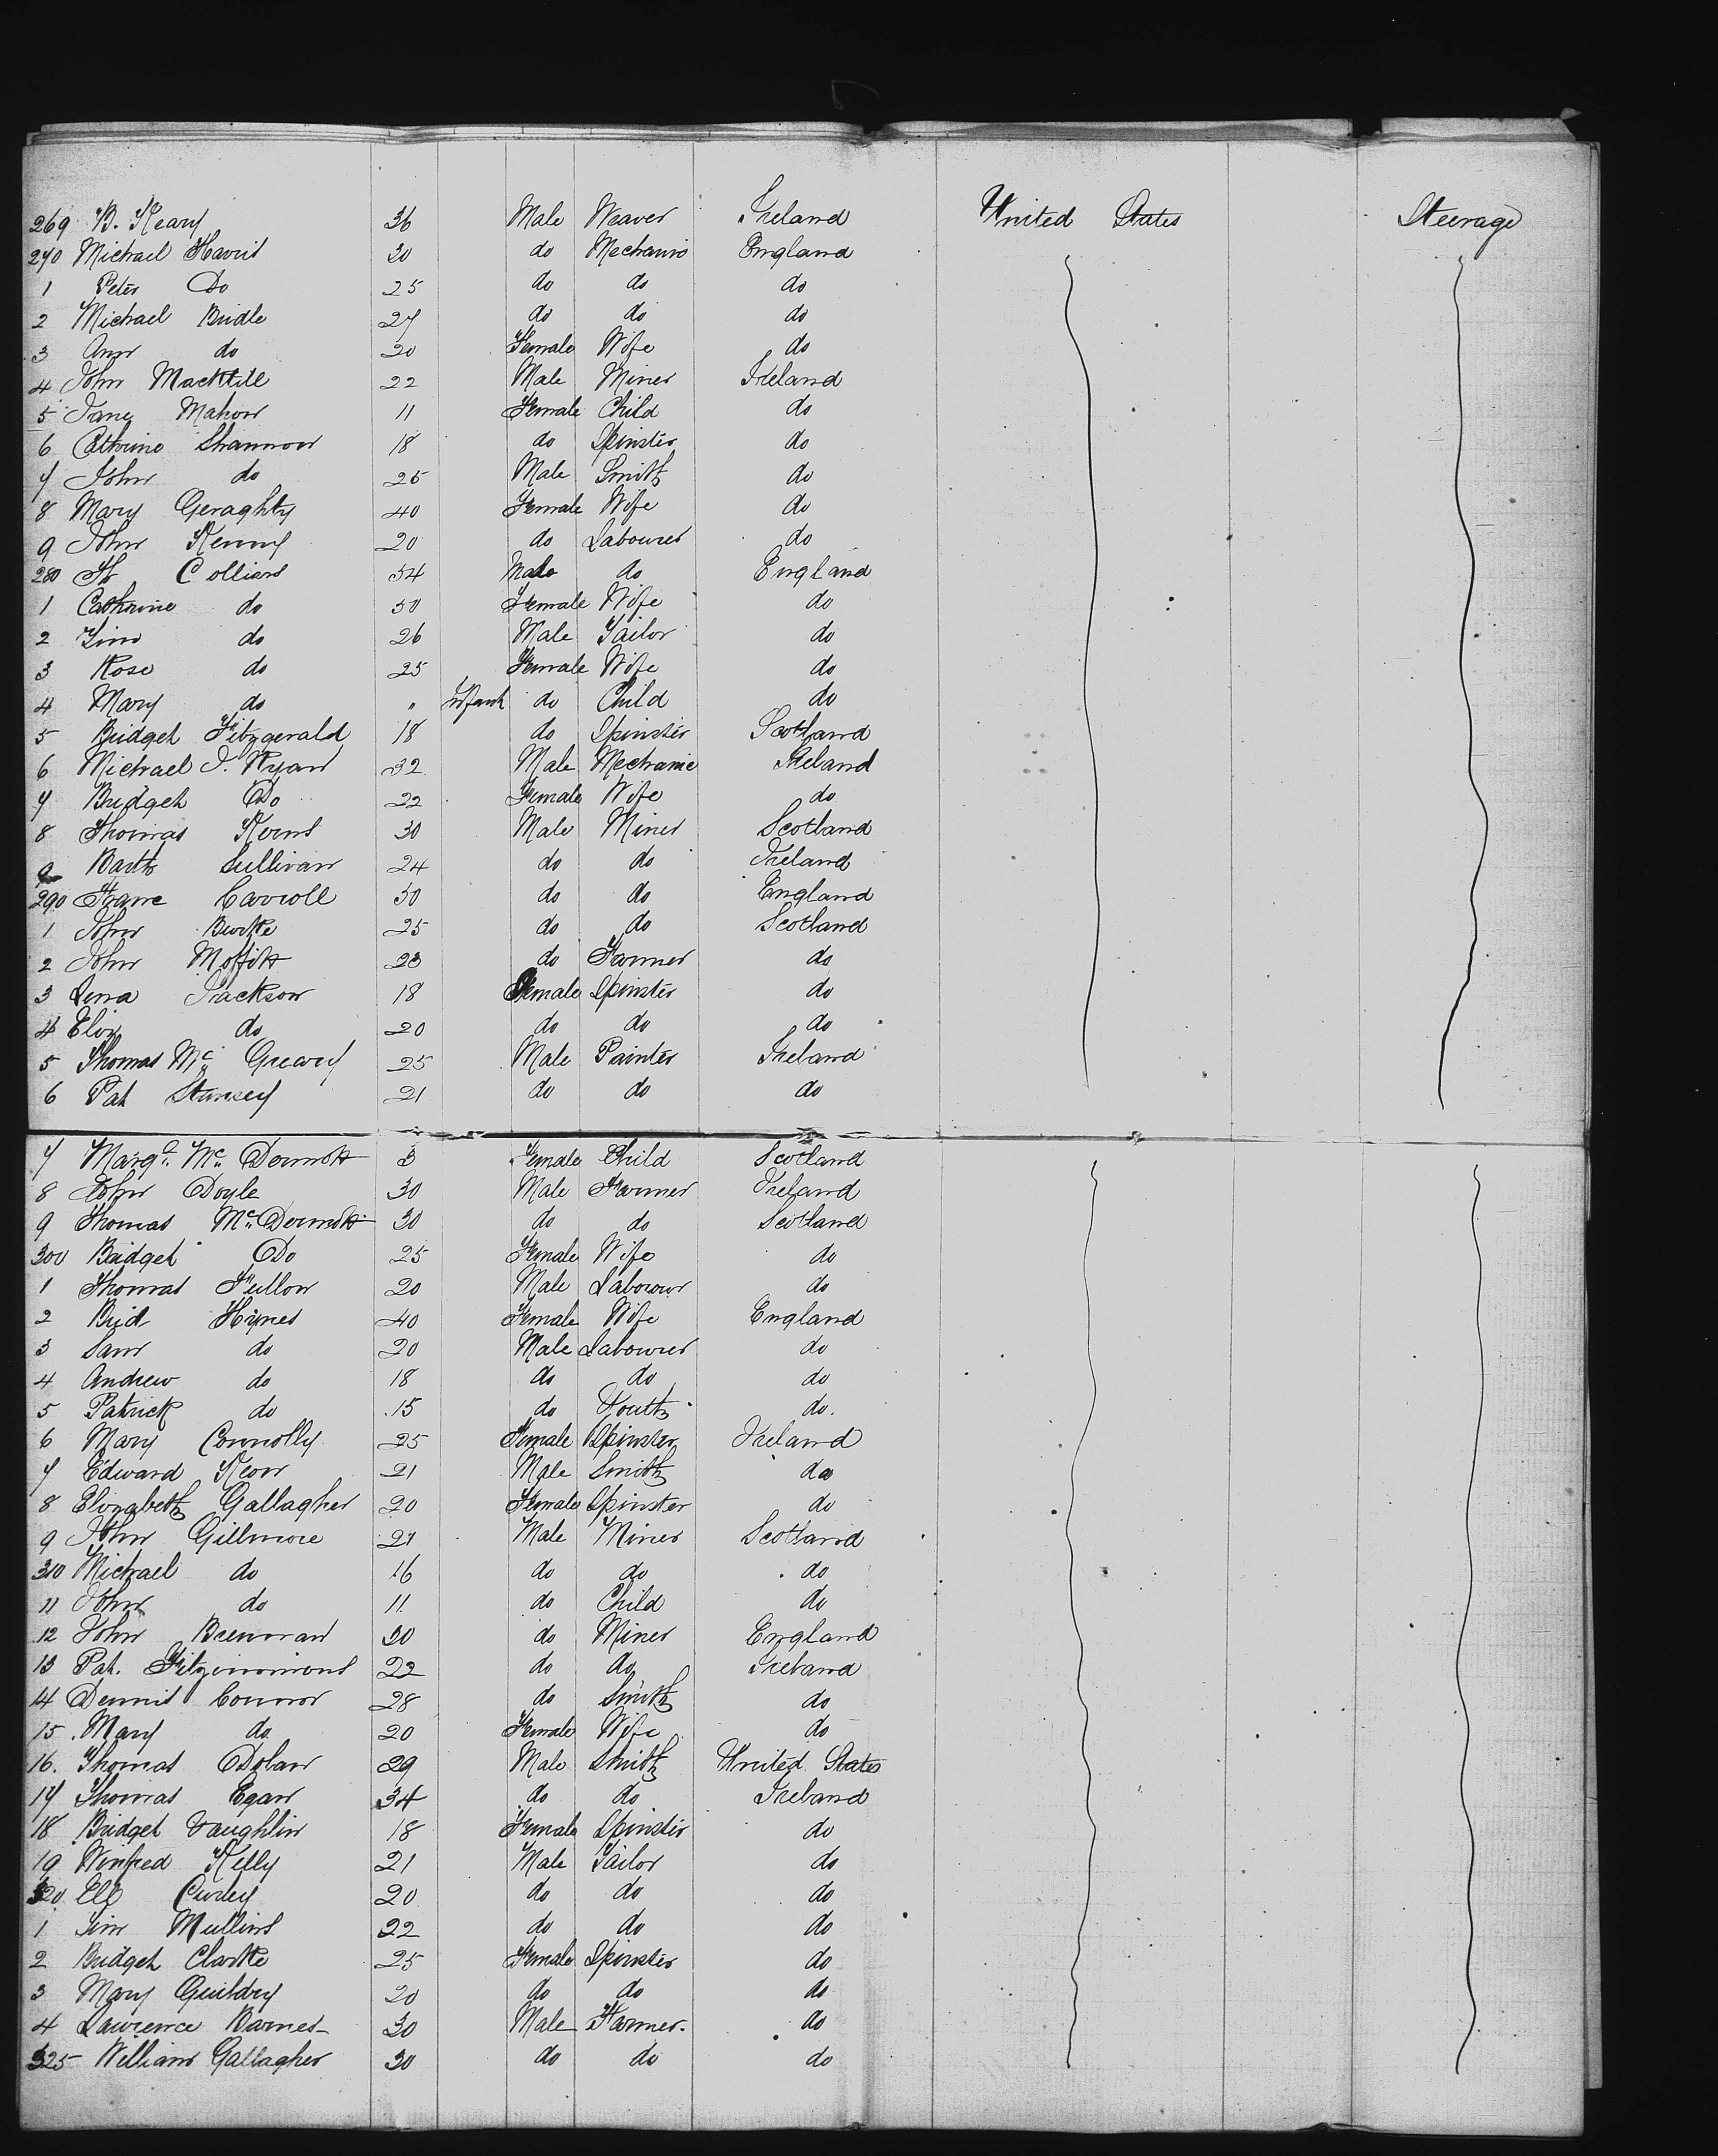 269 B. Keary 36 Male Weaver Ireland United States Steerage
270 Michael Harris 30 do Mechanic England
1 Peter Do 25 do do do
2 Michael Bridle 27 do do do
3 Ann do 20 Female Wife do
4 John 22 Male Miner Ireland
5 Jane Mahon 11 Female Child do
6 Cathrine Shannon 18 do Spinster do
7 John do 25 Male Smith do
8 Mary Geraghty 40 Female Wife do
9 John Kenny 20 do Labourer do
280 Colliers 54 Male do England
1 Cathrine do 50 Female Wife do
2 Jim do 26 Male Tailor do
3 Rose do 25 Female Wife do
4 Mary do " Infant do Child do
5 Bridget Fitzgerald 18 do Spinster Scotland
6 Michael J. Ryan 32 Male Mechanic Ireland
7 Bridget Do 22 Female Wife do
8 Thomas Kerns 30 Male Miner Scotland
9 Barth Sullivan 24 do do Ireland
290 Franc Carroll 30 do do England
1 John Burke 25 do do Scotland
2 John Moffitt 23 do Farmer do
3 Lena Jackson 18 Female Spinster do
4 Eliz do 20 do do do
5 Thomas Mc Greavy 25 Male Painter Ireland
6 Pat 21 do do do
7 Margt. Mc Dermott 3 Female Child Scotland
8 John Doyle 30 Male Farmer Ireland
9 Thomas Mc Dermott 30 do do Scotland
300 Bridget Do 25 Female Wife do
1 Thomas Fullon 20 Male Labourer do
2 Brid Hynes 40 Female Wife England
3 Sam do 20 Male Labourer do
4 Andrew do 18 do do do
5 Patrick do 15 do Youth do.
6 Mary Connolly 25 Female Spinster Ireland
7 Edward Keon 21 Male Smith do
8 Elizabeth Gallagher 20 Female Spinster do
9 John Gillmore 21 Male Miner Scotland
310 Michael do 16 do do do
11 John do 11 do Child do
12 John Brennan 30 do Miner England
13 Pat. Fitzimmons 22 do do Ireland
14 Dennis Connor 28 do Smith do
15 Mary do 20 Female Wife do
16. Thomas Dolan 29 Male Smith United States
17 Thomas Egan 34 do do Ireland
18 Bridget Vaughlin 18 Female Spinster do
19 Winfred Kelly 21 Male Tailor do
320 Curley 20 do do do
1 Jim Mullins 22 do do do
2 Bridget Clarke 25 Female Spinster do
3 Mary Guildry 20 do do do
4 Lawrence Barnes 30 Male Farmer. do
325 William Gallagher 30 do do do